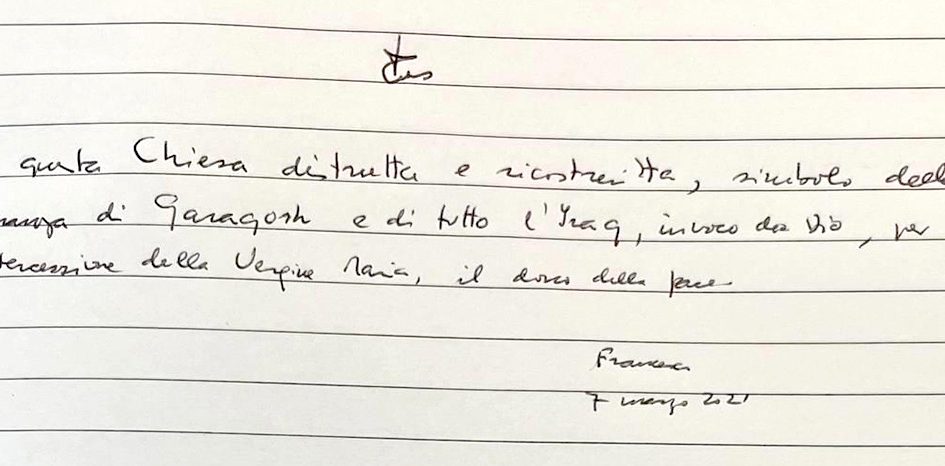 questa Chiesa distrutta e ricostruita, simbolo dell
ranza di Qaraqosh e di tutto l'Iraq, invoco da Dio, per
tercessione della Vergine Maria, il dono della pace
Francesco
7 marzo 2021